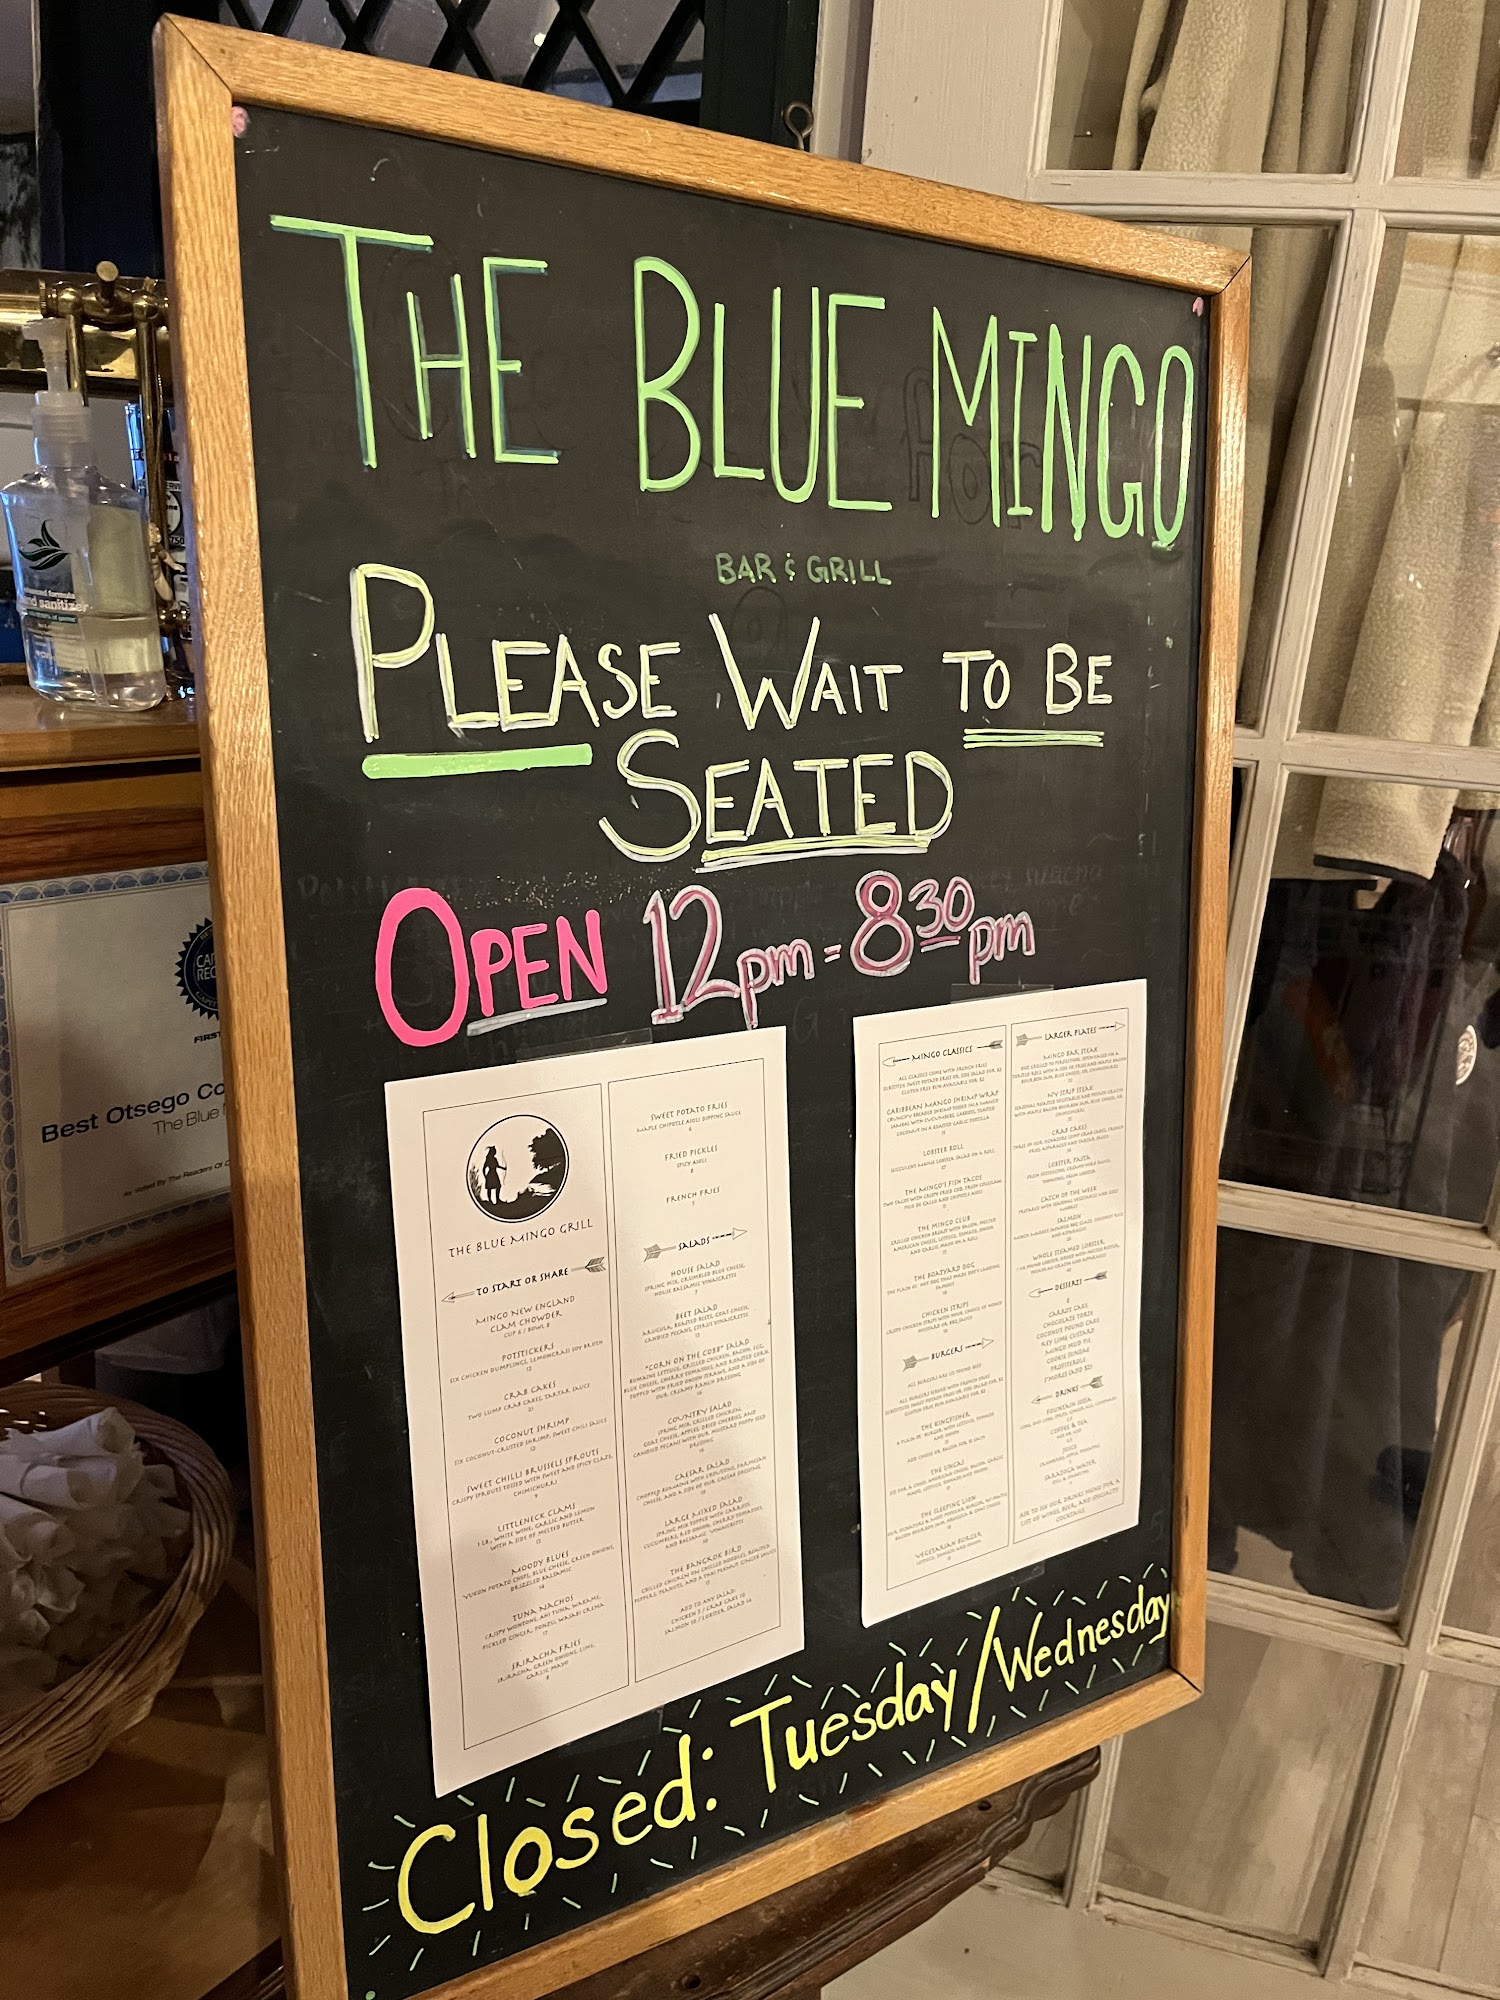 THE BLUE MINGO
BAR & GRILL
PLEASE WAIT TO BE
SEATED
OPEN 12pm - 8:30pm
THE BLUE MINGO GRILL
TO START OR SHARE
MINGO NEW ENGLAND
CLAM CHOWDER
CUP 6 / BOWL 8
POTSTICKERS
SIX CHICKEN DUMPLINGS, LEMONGRASS SOY BROTH
12
CRAB CAKES
TWO LUMP CRAB CAKES, TARTAR SAUCE
21
COCONUT SHRIMP
SIX COCONUT-CRUSTED SHRIMP, SWEET CHILI SAUCE
SWEET CHILI BRUSSELS SPROUTS
CRISPY SPROUTS TOSSED WITH SWEET AND SPICY GLAZE,
CHIMICHURRI
9
LITTLENECK CLAMS
1 LB, WHITE WINE, GARLIC AND LEMON
WITH A SIDE OF MELTED BUTTER
MOODY BLUES
YUKON POTATO CHIPS, BLUE CHEESE, GREEN ONIONS,
DRIZZLED BALSAMIC
14
TUNA NACHOS
CRISPY WONTONS, AHI TUNA, WAKAME,
PICKLED GINGER, PONZU, WASABI CREMA
17
SRIRACHA FRIES
SRIRACHA, GREEN ONIONS, LIME,
GARLIC MAYO
8
SWEET POTATO FRIES
MAPLE CHIPOTLE AIOLI DIPPING SAUCE
6
FRIED PICKLES
SPICY AIOLI
8
FRENCH FRIES
5
SALADS
HOUSE SALAD
SPRING MIX, CRUMBLED BLUE CHEESE,
HOUSE BALSAMIC VINAIGRETTE
7
BEET SALAD
ARUGULA, ROASTED BEETS, GOAT CHEESE,
CANDIED PECANS, CITRUS VINAIGRETTE
13
"CORN ON THE COBB" SALAD
ROMAINE LETTUCE, GRILLED CHICKEN, BACON, EGG,
BLUE CHEESE, CHERRY TOMATOES, AND ROASTED CORN
TOPPED WITH FRIED ONION STRAWS, AND A SIDE OF
OUR CREAMY RANCH DRESSING
16
COUNTRY SALAD
SPRING MIX, GRILLED CHICKEN,
GOAT CHEESE, APPLES, DRIED CHERRIES, AND
CANDIED PECANS WITH OUR MUSTARD POPPY SEED
DRESSING
16
CAESAR SALAD
CHOPPED ROMAINE WITH CROUTONS, PARMESAN
CHEESE, AND A SIDE OF OUR CAESAR DRESSING
LARGE MIXED SALAD
SPRING MIX TOPPED WITH CARROTS,
CUCUMBERS, RED ONION, CHERRY TOMATOES,
AND BALSAMIC VINAIGRETTE
10
THE BANGKOK BIRD
GRILLED CHICKEN ON CHILLED NOODLES, ROASTED
PEPPERS, PEANUTS, AND A THAI PEANUT GINGER SAUCE
ADD TO ANY SALAD:
CHICKEN 7 / CRAB CAKE 10
SALMON 10 / LOBSTER SALAD 14
MINGO CLASSICS
ALL CLASSICS COME WITH FRENCH FRIES
SUBSTITUTE SWEET POTATO FRIES OR SIDE SALAD FOR $2
GLUTEN FREE BUN AVAILABLE FOR $2
CARIBBEAN MANGO SHRIMP WRAP
CRUNCHY BREADED SHRIMP TOSSED IN A MANGO
SAMBAL WITH CUCUMBERS, CARROTS, TOASTED
COCONUT IN A ROASTED GARLIC TORTILLA
LOBSTER ROLL
SUCCULENT MAINE LOBSTER SALAD ON A ROLL
27
THE MINGO'S FISH TACOS
TWO TACOS WITH CRISPY FRIED COD, FRESH COLESLAW,
PICO DE GALLO AND CHIPOTLE AIOLI
THE MINGO CLUB
GRILLED CHICKEN BREAST WITH BACON, MELTED
AMERICAN CHEESE, LETTUCE, TOMATO, ONION
AND GARLIC MAYO ON A ROLL
THE BOATYARD DOG
THE PLAIN OL' HOT DOG THAT MADE BOB'S LANDING
FAMOUS
10
CHICKEN STRIPS
CRISPY CHICKEN STRIPS WITH YOUR CHOICE OF HONEY
MUSTARD OR BBQ SAUCE
BURGERS
ALL BURGERS ARE 1/2 POUND BEEF
ALL BURGERS SERVED WITH FRENCH FRIES
SUBSTITUTE SWEET POTATO FRIES OR SIDE SALAD FOR $2
GLUTEN FREE BUN AVAILABLE FOR $2
THE KINGFISHER
A PLAIN OL' BURGER WITH LETTUCE, TOMATO
AND ONION
ADD CHEESE OR BACON FOR $1 EACH
THE UNCAS
AMERICAN CHEESE, BACON, GARLIC
MAYO, LETTUCE, TOMATO AND ONION
THE SLEEPING LION
OUR SIGNATURE & MOST POPULAR BURGER, W/ MAPLE
BACON BOURBON JAM, ARUGULA & GOAT CHEESE
VEGETARIAN BURGER
LETTUCE, TOMATO AND ONION
LARGER PLATES
MINGO BAR STEAK
8OZ GRILLED TO PERFECTION, OPEN-FACED ON A
TOASTED ROLL WITH A SIDE OF FRIES AND MAPLE BACON
BOURBON JAM, BLUE CHEESE, OR CHIMICHURRI
NY STRIP STEAK
SEASONAL ROASTED VEGETABLES AND FRENCH FRIES
WITH MAPLE BACON BOURBON JAM, BLUE CHEESE, OR
CHIMICHURRI
CRAB CAKES
THREE OF OUR SIGNATURE LUMP CRAB CAKES, FRENCH
FRIES, ASPARAGUS AND TARTAR SAUCE
LOBSTER PASTA
CATCH OF THE WEEK
PREPARED WITH SEASONAL VEGETABLES AND RICE
MARKET
SALMON
MINGO MARKET JAPANESE BBQ GLAZE, COCONUT RICE
AND ASPARAGUS
WHOLE STEAMED LOBSTER
1 1/4 POUND LOBSTER, SERVED WITH MELTED BUTTER,
POTATO AU GRATIN AND ASPARAGUS
DESSERTS
8
CARROT CAKE
CHOCOLATE TORTE
COCONUT POUND CAKE
KEY LIME CUSTARD
MINGO MUD PIE
COOKIE SUNDAE
PROFITEROLE
S'MORES (ADD $2)
DRINKS
FOUNTAIN SODA
COFFEE & TEA
HOT OR ICED
JUICE
SARATOGA WATER
STILL & SPARKLING
ASK TO SEE OUR DRINKS MENU FOR A
LIST OF WINES, BEER, AND SPECIALTY
COCKTAILS
Closed: Tuesday/Wednesday
hand sanitizer
FIRST
Best Otsego Co
The Blue
As Voted By The Readers Of